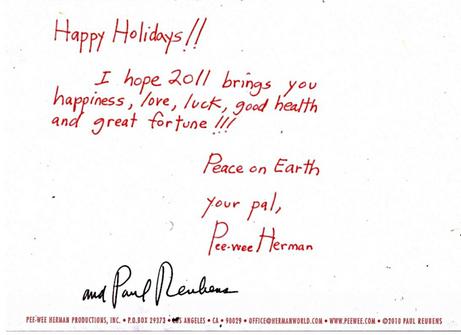 Happy Holidays!!
I hope 2011 brings you
happiness, love, luck, good health
and great fortune!!!
Peace on Earth
your pal,
Pee-wee Herman
and Paul Reubens
PEE-WEE HERMAN PRODUCTIONS, INC. • P.O.BOX 29373 • LOS ANGELES • CA • 90029 • OFFICE@HERMANWORLD.COM • WWW.PEEWEE.COM • ©2010 PAUL REUBENS